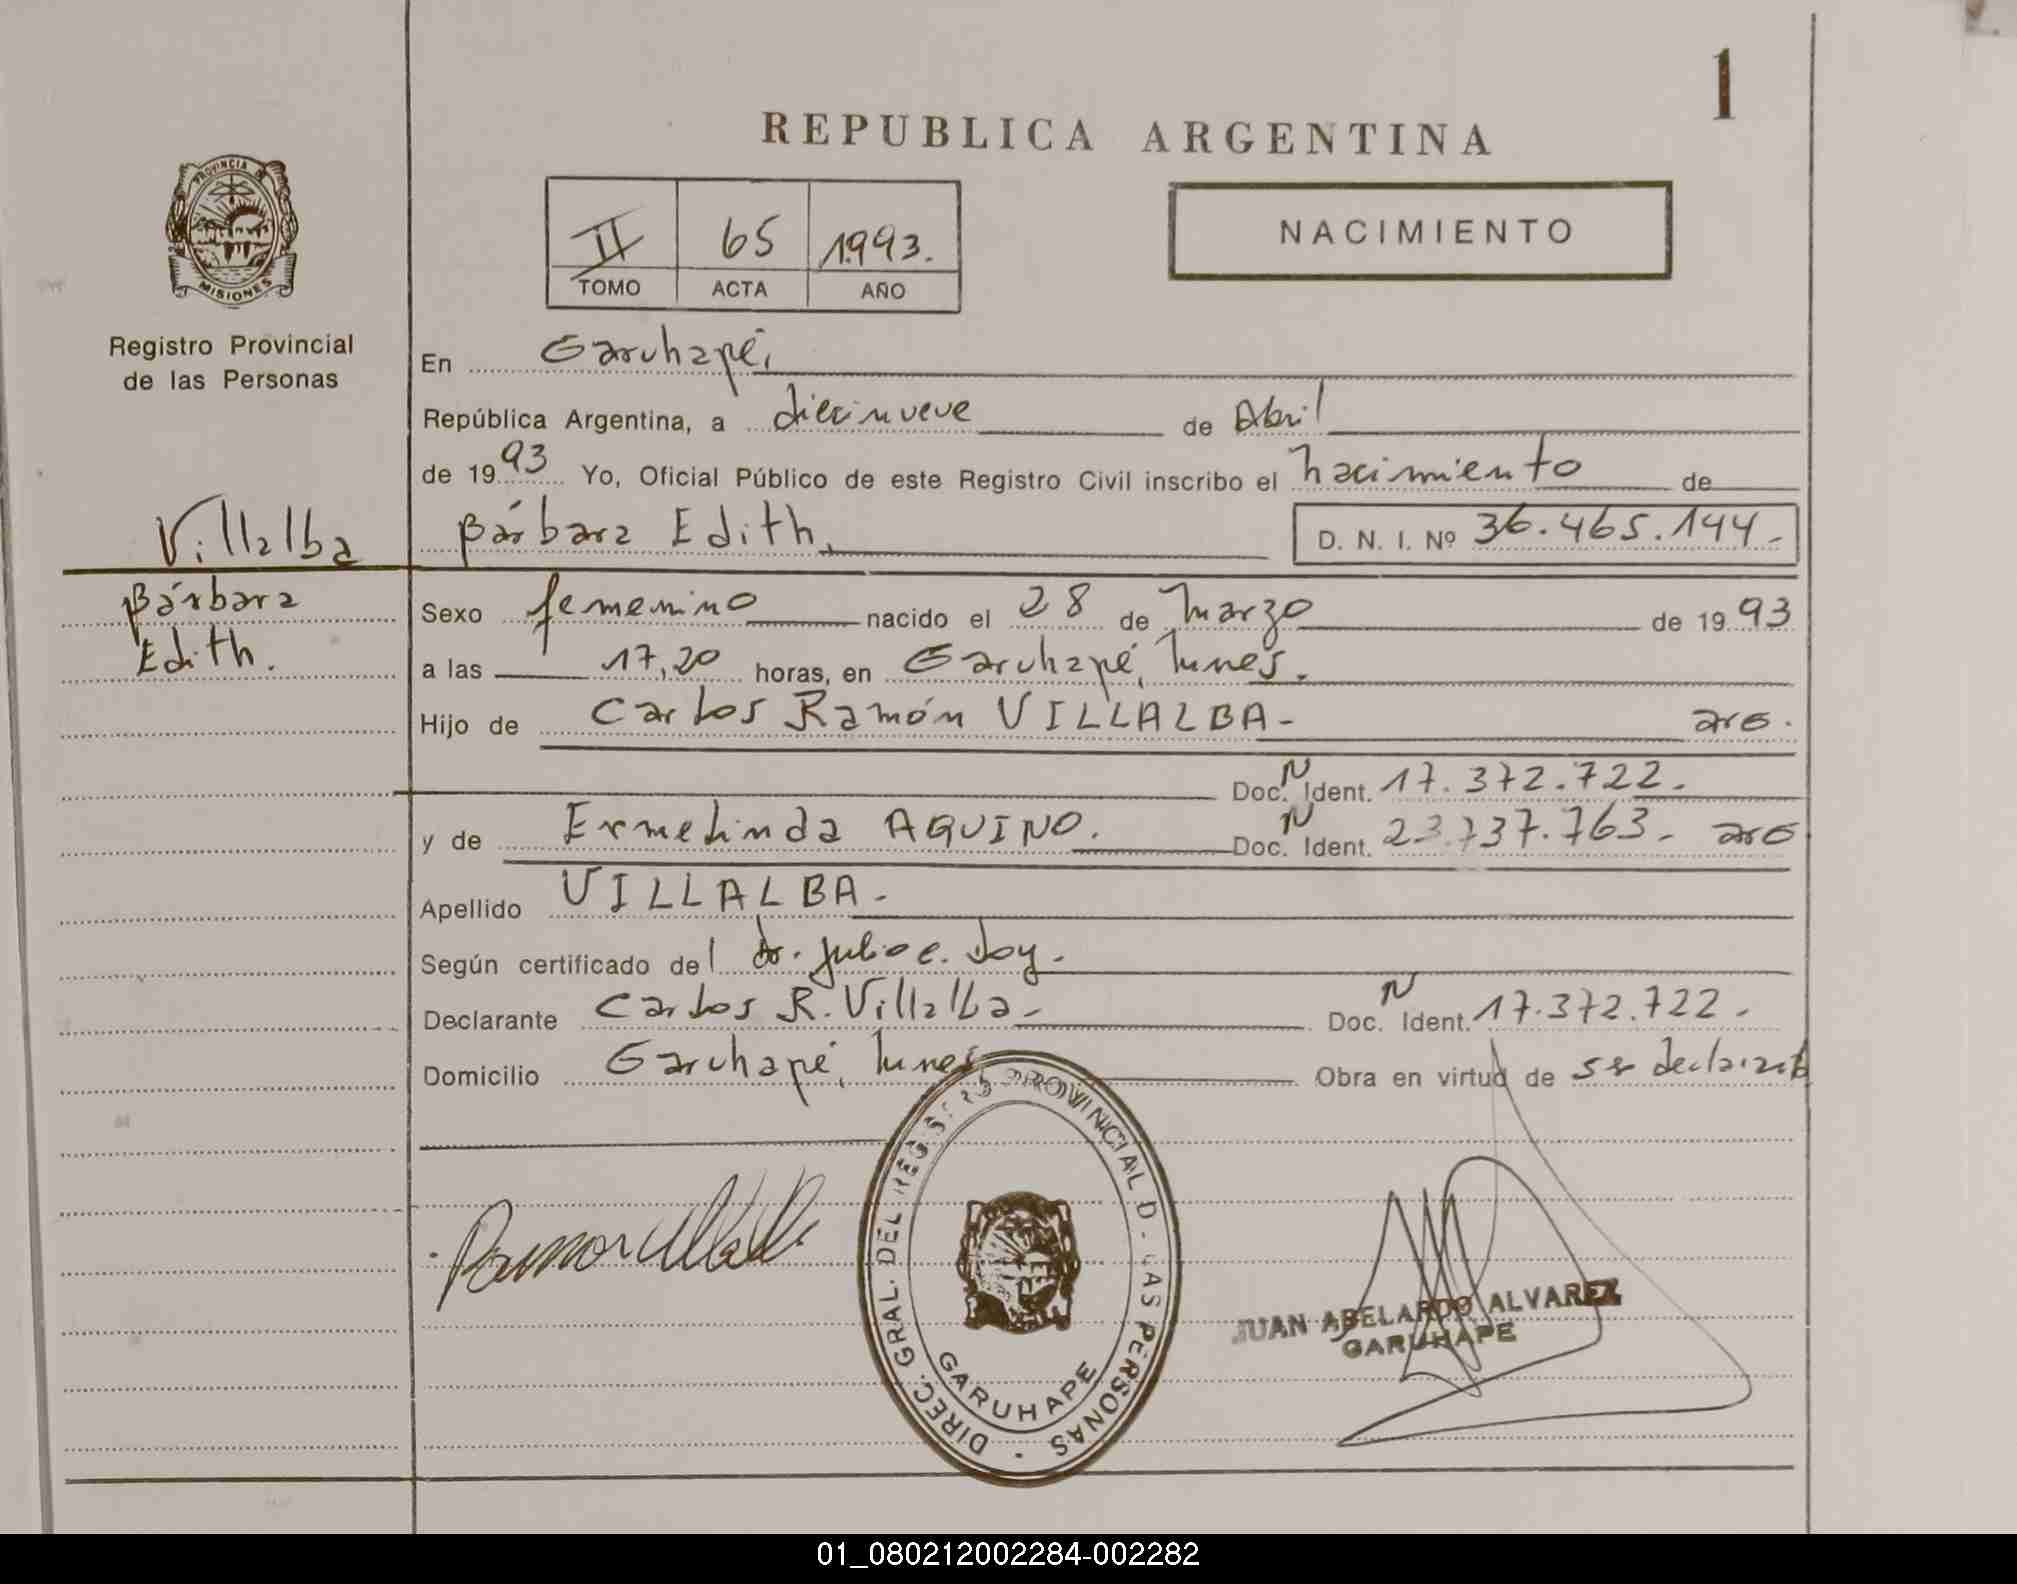 1
REPUBLICA ARGENTINA
PROVINCIA DE
MISIONES
Registro Provincial
de las Personas
II 65 1993.
TOMO ACTA AÑO
NACIMIENTO
En Garuhapé,
República Argentina, a diecinueve de Abril
de 1993 Yo, Oficial Público de este Registro Civil inscribo el nacimiento de
Villalba
Bárbara Edith,
D. N. I. Nº 36.465.144-
Bárbara
Edith.
Sexo femenino nacido el 28 de marzo de 1993
a las 17,20 horas, en Garuhapé,
Hijo de Carlos Ramón VILLALBA- arg.
Doc. N Ident. 17.372.722.
y de Ermelinda AQUINO. Doc. N Ident. 23.737.763- arg
Apellido VILLALBA-
Según certificado del dr. Julio e.
Declarante Carlos R. Villalba- Doc. N Ident. 17.372.722-
Domicilio Garuhapé, Obra en virtud de
DIREC. GRAL. DEL REGISTRO PROVINCIAL D LAS PERSONAS
GARUHAPE
JUAN ABELARDO ALVAREZ
GARUHAPE
01_080212002284-002282